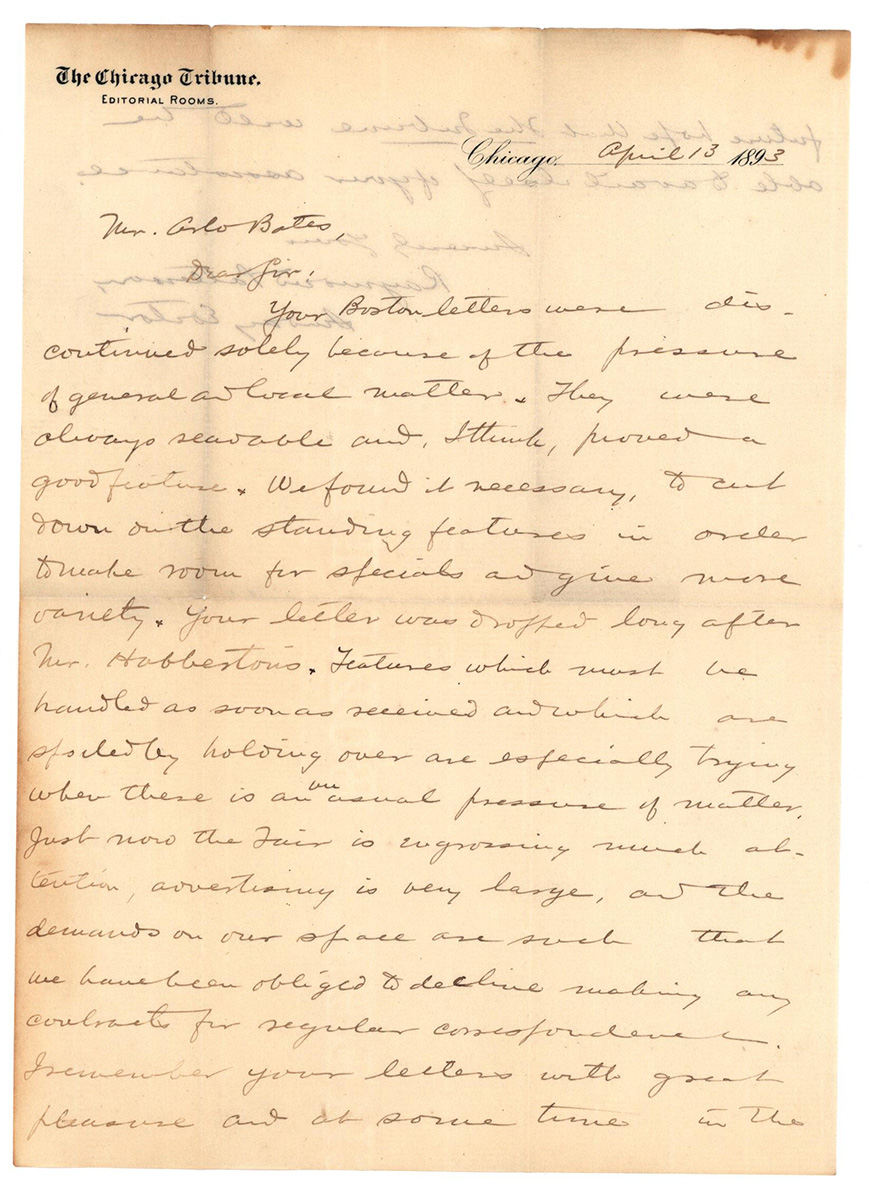 The Chicago Tribune.
EDITORIAL ROOMS.
Chicago, April 13 1893
Mr. Arlo Bates,
Dear Sir:
Your Boston letters were dis-
continued solely because of the pressure
of general and local matter. They were
always readable and, I think, proved a
good feature. We found it necessary, to cut
down on the standing features in order
to make room for specials and give more
variety. Your letter was dropped long after
Mr. Habberton's. Features which must be
handled as soon as received and which are
spoiled by holding over are especially trying
when there is an unusual pressure of matter.
Just now the Fair is engrossing much at-
tention, advertising is very large, and the
demands on our space are such that
we have been obliged to decline making any
contracts for regular correspondence.
I remember your letters with great
pleasure and at some time in the
future hope that The Tribune will be
able to avail itself of your assistance.
Sincerely Yours
Raymond Patterson
Sunday Editor